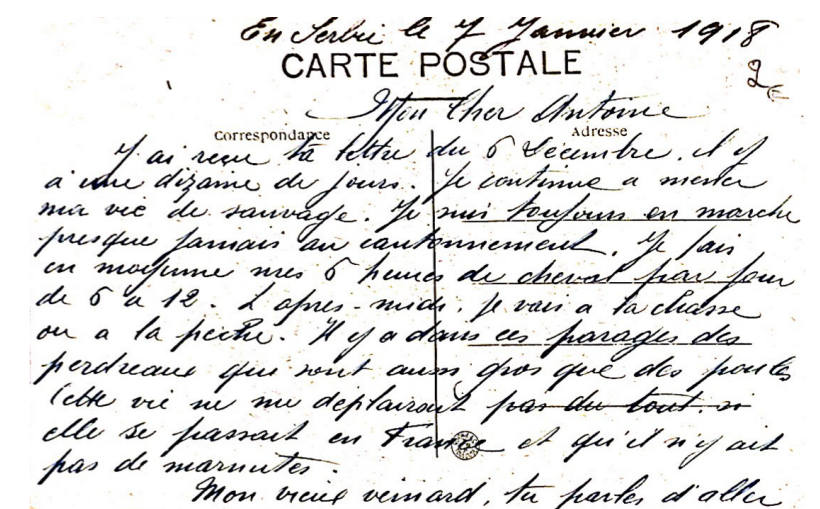 En Serbie le 7 Janvier 1918
CARTE POSTALE
2€
Mon Cher Antoine
Correspondance
Adresse
J'ai reçu ta lettre du 6 Décembre, il y
a une dizaine de jours. Je continue a mener
ma vie de sauvage. Je suis toujours en marche
presque jamais au cantonnement. Je fais
en moyenne mes 6 heures de cheval par jour
de 6 a 12. L'apres-midi, je vais a la chasse
ou a la peche. Il y a dans ces parages des
perdreaux qui sont aussi gros que des poules
Cette vie ne me deplairait pas du tout, si
elle se passait en France et qu'il n'y ait
pas de marmites.
Mon vieux veinard, tu parles d'aller